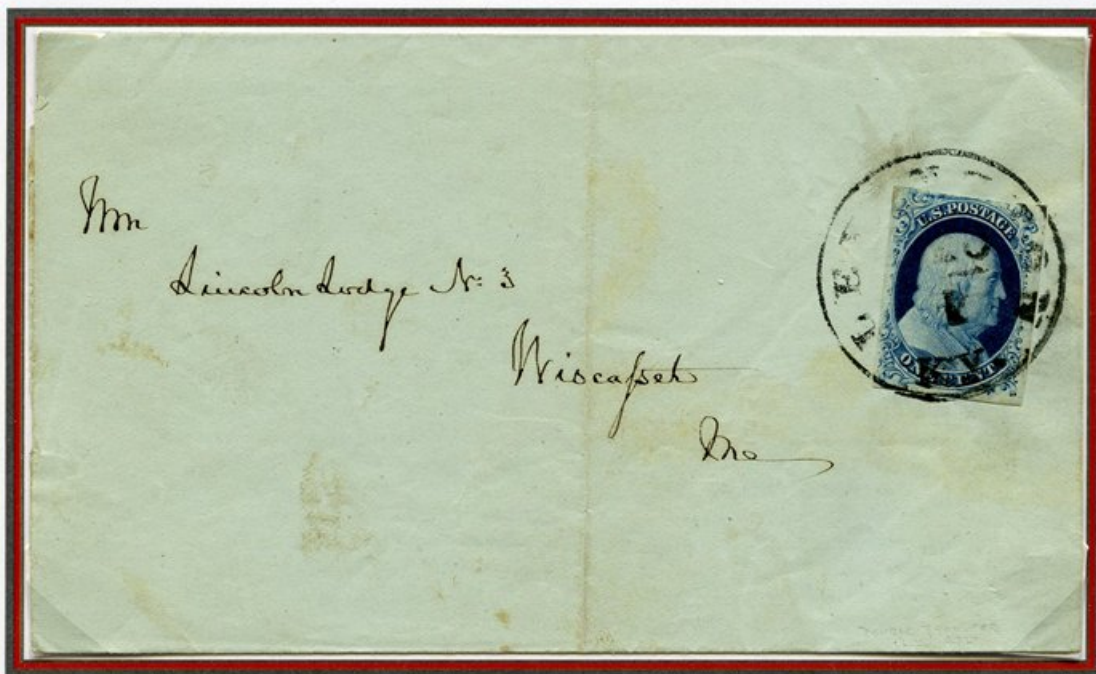 Lincoln Lodge No: 3
Wiscasset
Me
U.S. POSTAGE
ONE CENT.
KY.